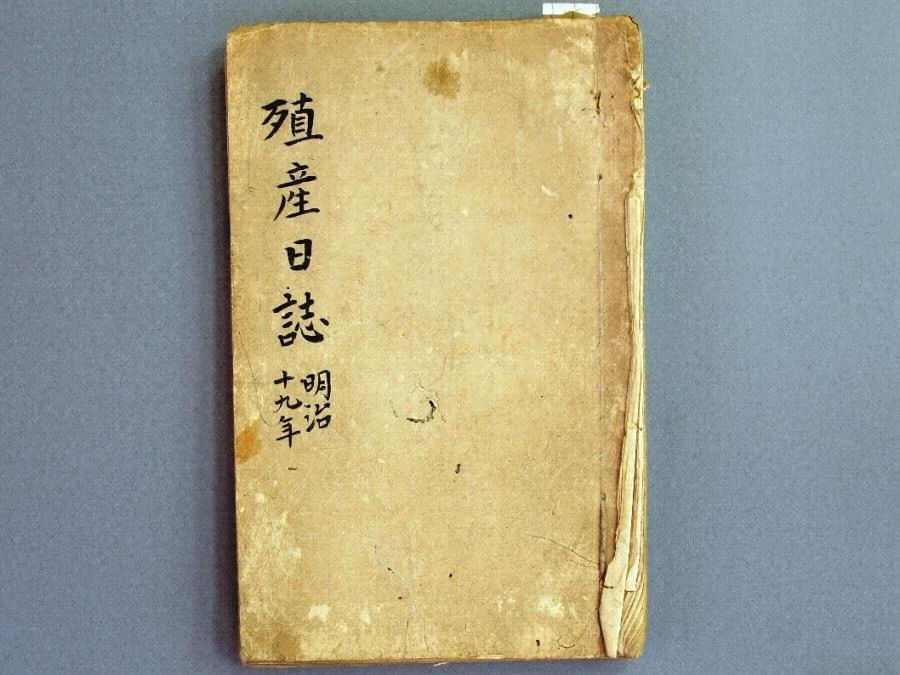 殖産日誌
明治
十九年